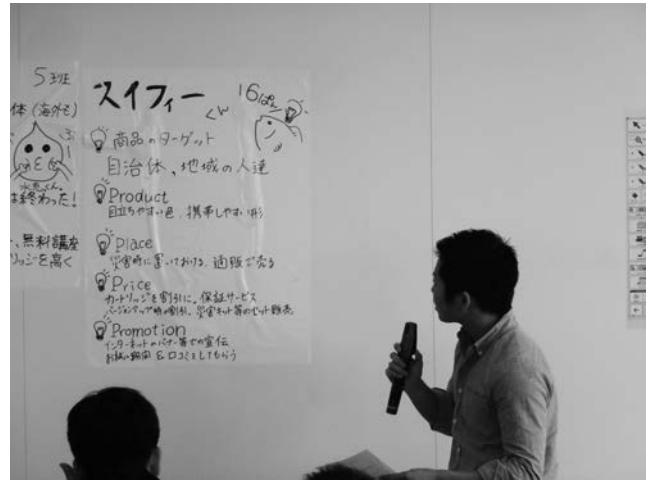 5班
体(海外も)
水恵くん。
は終わった!
、無料講座
リッジを高く
スイフィー
くん
16ぱん
商品のターゲット
自治体、地域の人達
Product
目立ちやすい色、携帯しやすい形
Place
災害時に置いておける、通販で売る
Price
カートリッジを割引に、保証サービス
バージョンアップ時の割引、災害キット等のセット販売
Promotion
インターネットのバナー等での宣伝
&口コミをしてもらう